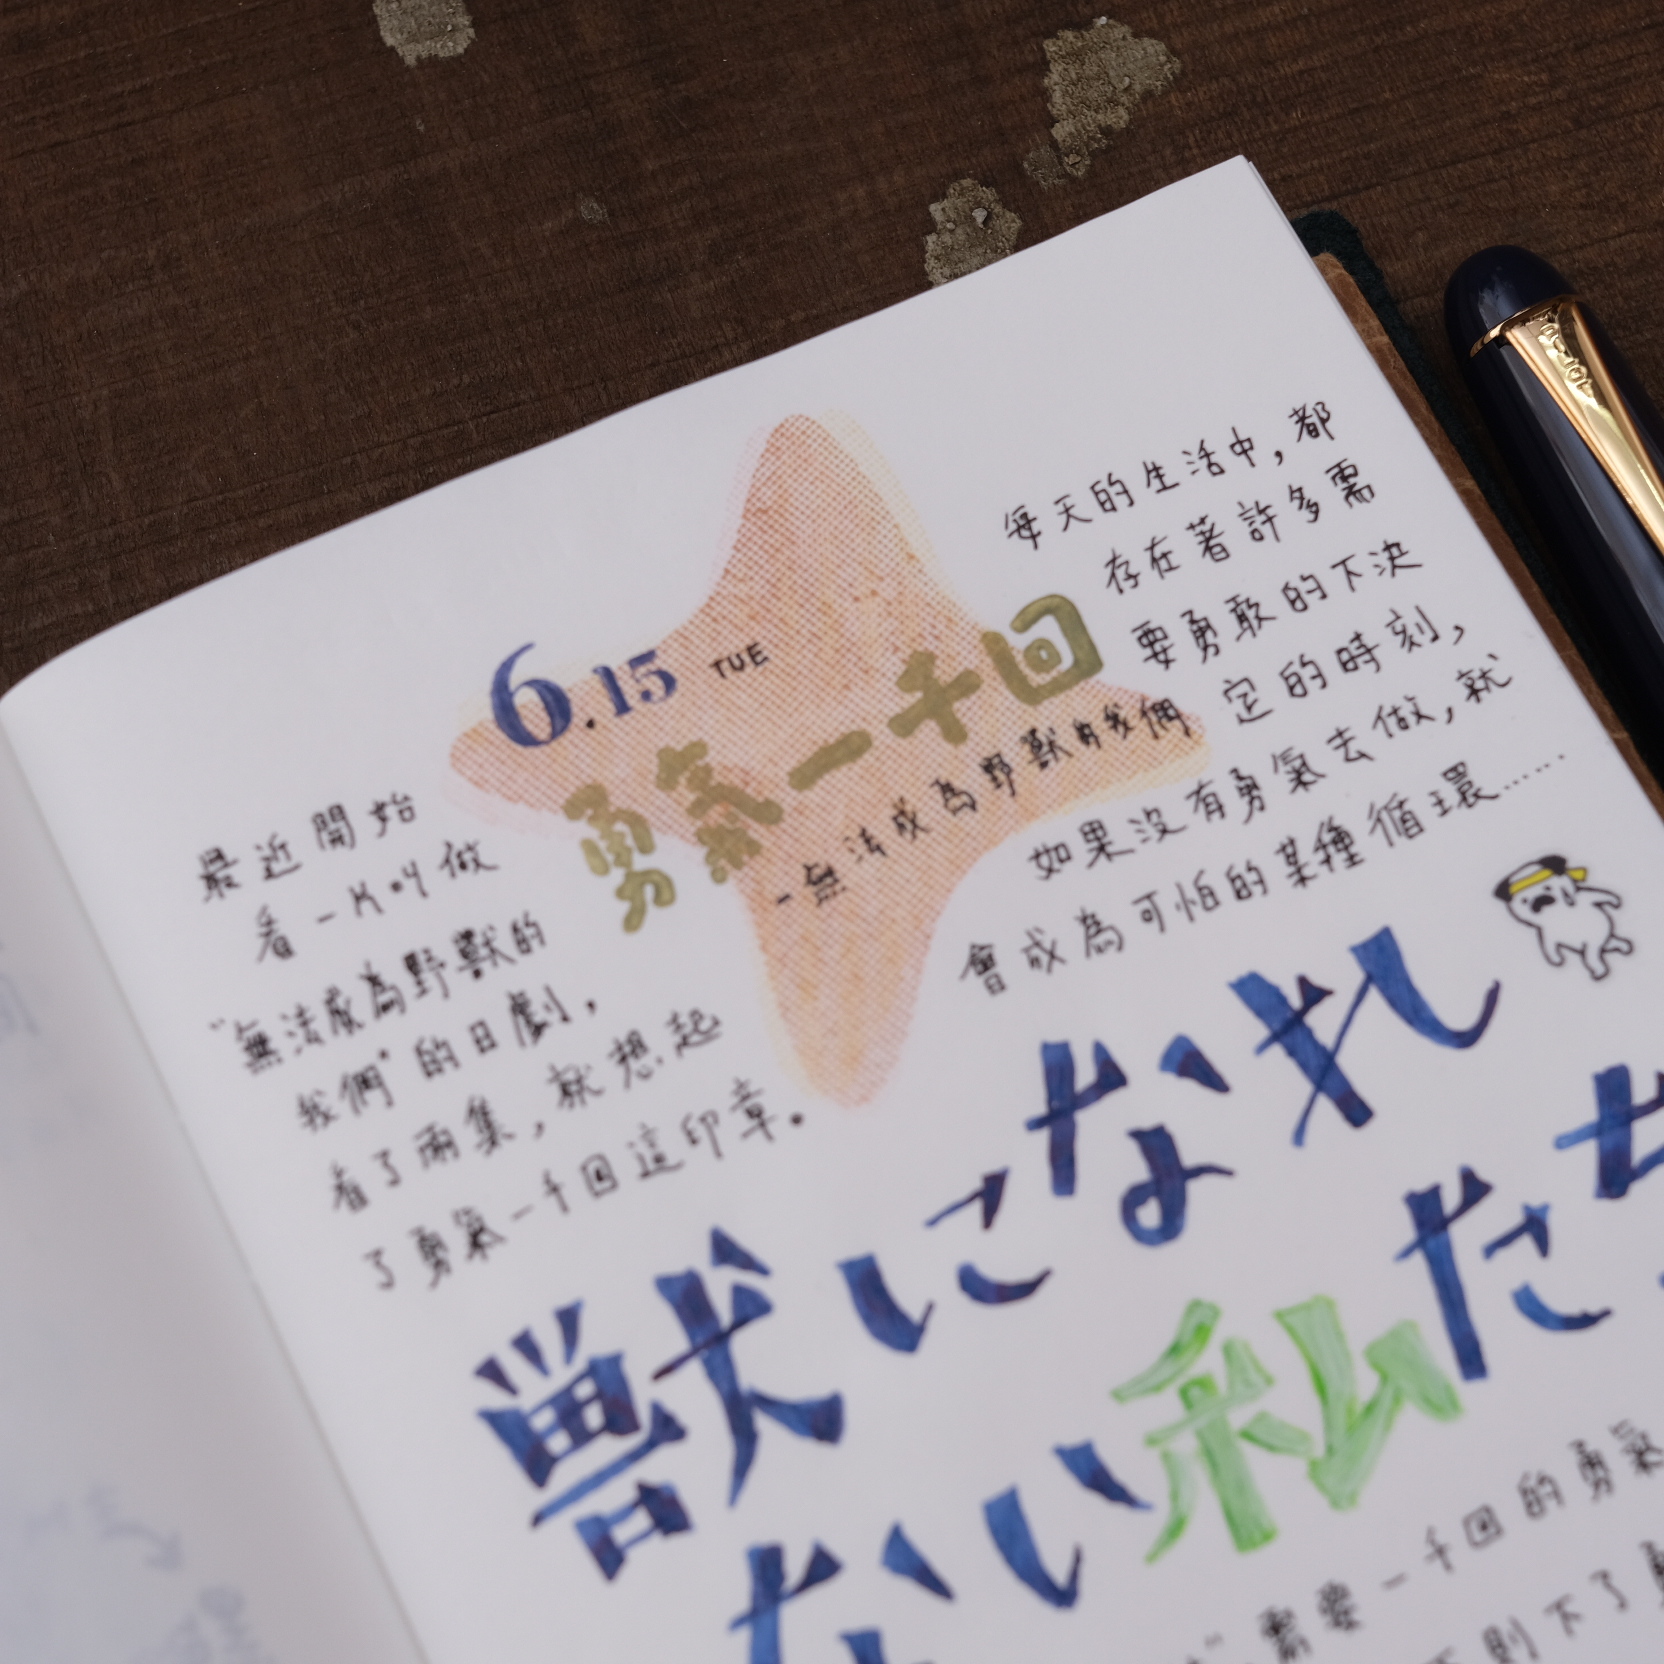 6.15 TUE
勇氣一千回
-無法成為野獸的我們
最近開始
看一片叫做
"無法成為野獸的
我們"的日劇,
看了兩集,就想起
了勇氣一千回這印章。
每天的生活中,都
存在著許多需
要勇敢的下決
定的時刻,
如果沒有勇氣去做,就
會成為可怕的某種循環……
獣になれ
ない私たち
需要一千回的勇氣
則下了
PILOT